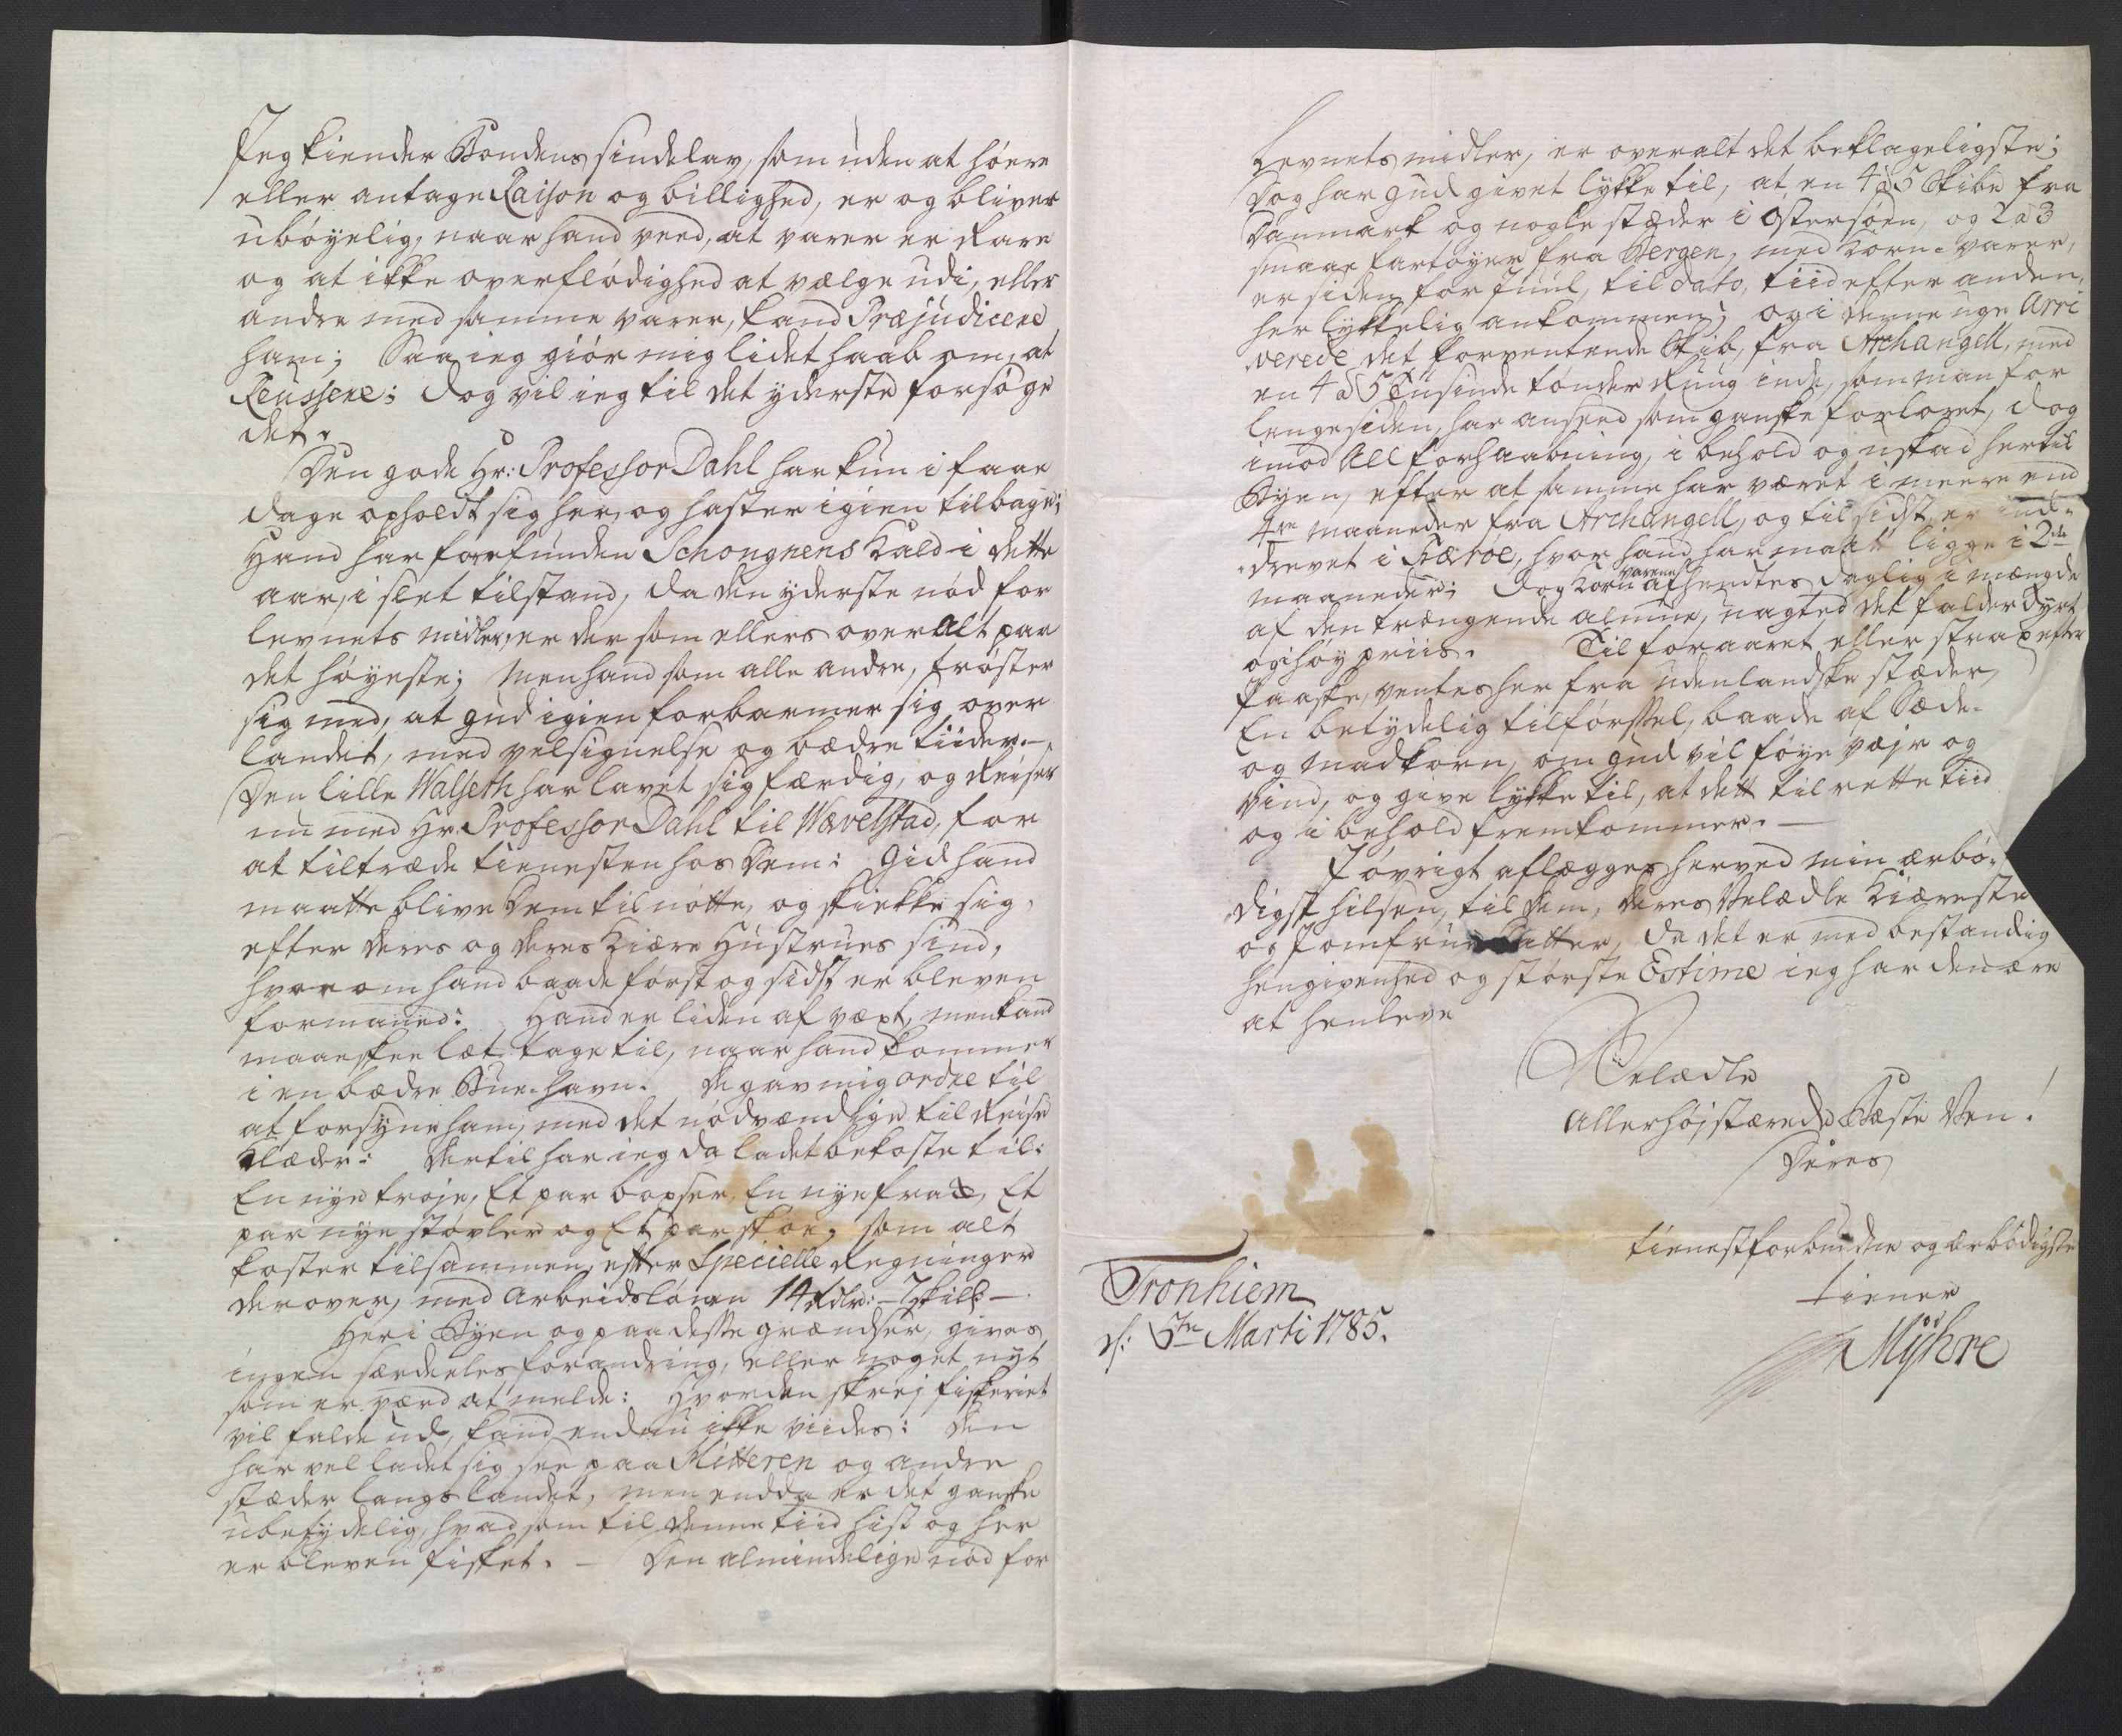 Jeg kiender Bondens sindelav, som uden at höere
eller antage Raison og billighed, er og bliver
uböyelig, naar hand veed, at varer er Rare
og at ikke overflödighed at vælge udi, eller
andre med samme varer, kand Præjudicere
ham; Saa ieg giör mig lidet haab om, at
Reussere; Dog vil ieg til det yderste forsöge
det.
Den gode Hr: Professor Dahl har kun i faae
dage opholdt sig her, og haster igien tilbage;
Hand har forefunden Schongnens Kald i dette
aar, i slet tilstand, da den yderste nöd for
levnets midler, er der som ellers over alt paa
det höyeste; Men hand som alle andre, tröster
sig med, at gud igien forbarmer sig over
landet, med velsignelse og bædre tiider. —
Den lille Walseth har lavet sig færdig, og Reiser
nu med Hr. Professor Dahl til Wævelstad, for
at tiltræde tienesten hos Dem: Gid hand
maatte blive Dem til nötte, og skiekke sig,
efter deres og deres Kiære Hustrues sind,
hvorom hand baade först og sidst er bleven
formaned: Hand er liden af væxt, men kand
maaeskee læt tage til, naar hand kommer
i en bædre Bue-havn. De gav mig ordre til
at forsyne ham, med det nödvændige til Reise
Klæder: Dertil har ieg da ladet bekoste til:
En nye tröje, Et par boxser, En nye frax, Et
par nye stövler og Et par skoe, som alt
koster tilsammen, efter Specielle Regninger
derover, med Arbeidslönen 14 Rdlr: - 7 skill -.
Her i Byen og paa desse grændser, gives
ingen særdeeles forandring, eller noget nyt
som er værd at melde: Hvordan skrej fiskeriet
vil falde ud, kand endnu ikke viides: Den
har vel ladet sig see paa Hitteren og andre
stæder langs landet, men endda er det ganske
ubetydelig, hvad som til denne tiid hist og her
er bleven fisket. — Den almindelige nöd for
Levnets midler, er overalt det beklageligste;
Dog har gud givet lykke til, at en 4 a 5 Skibe fra
Danmark og nogle stæder i Östersöen, og 2 a 3
smaae fartöyer fra Bergen, med Korn-varer,
er siden for Juul, til dato, tiid efter anden,
her lykkelig ankommen; og i denne uge Arri
verede det forventende Skib, fra Archangell, med
en 4 a 5 Tusinde tönder Rug inde, som man for
lenge siden, har anseed som ganske forloret, dog
imod All forhaabning, i behold og uskad hertil
Byen, efter at samme har været i meere end
4re maaneder fra Archangell, og til sidst er ind-
drevet i Færoe, hvor hand har maatt ligge i 2de
maaneder; Dog Korn varene afhendtes daglig i mængde
af den trængende almue, uagted det falder dyrt
og i höy priis. Til foraaret eller strax efter
Paaske, ventes her fra udenlandske stæder,
En betydelig tilförssel, baade af Sæde-
og Madkorn, om gud vil föye væjr og
Vind, og give lykke til, at dett til rette tiid
og i behold fremkommer. —
J övrigt aflægges herved min ærbö-
digst hilsen, til dem, deres Velædle Kiæreste
og Jomfrue Datter, da det er med bestandig
hengivenhed og störste Estime ieg har den ære
at henleve
Velædle
Allerhöjstærede Bæste Ven!
Deres
tienestforbundne og ærbödigste
tiener
Myhre
Tronhiem
d: 5te Marti 1785.